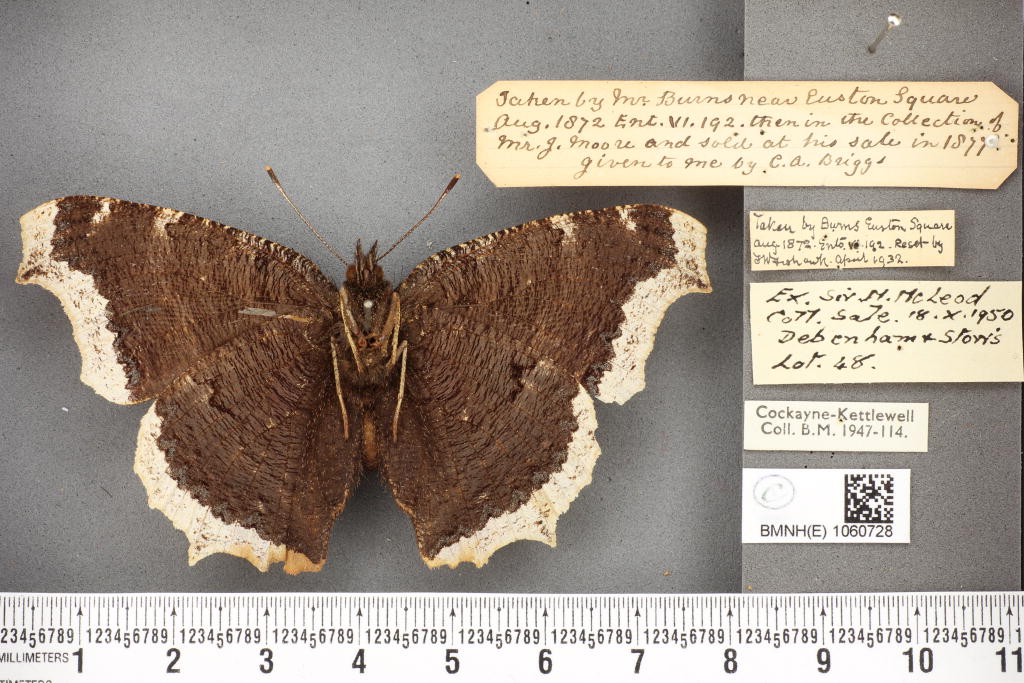 Taken by Mr. Burns near Euston Square
Aug. 1872 Ent. VI. 192. then in the Collection of
Mr. J. Moore and sold at his sale in 1877.
given to me by C. A. Briggs
Taken by Burns Euston Square
Aug 1872. Ento. VI. 192. Reset by
FW Frohawk. April 1932.
Ex. Sir M. McLeod
Coll. Sale. 18. X. 1950
Debenham & Storrs
Lot. 48.
Cockayne-Kettlewell
Coll. B.M. 1947-114.
C
BMNH(E) 1060728
23456789 123456789 123456789 123456789 123456789 123456789 123456789 123456789 123456789 123456789 123456789
MILLIMETERS 1 2 3 4 5 6 7 8 9 10 11